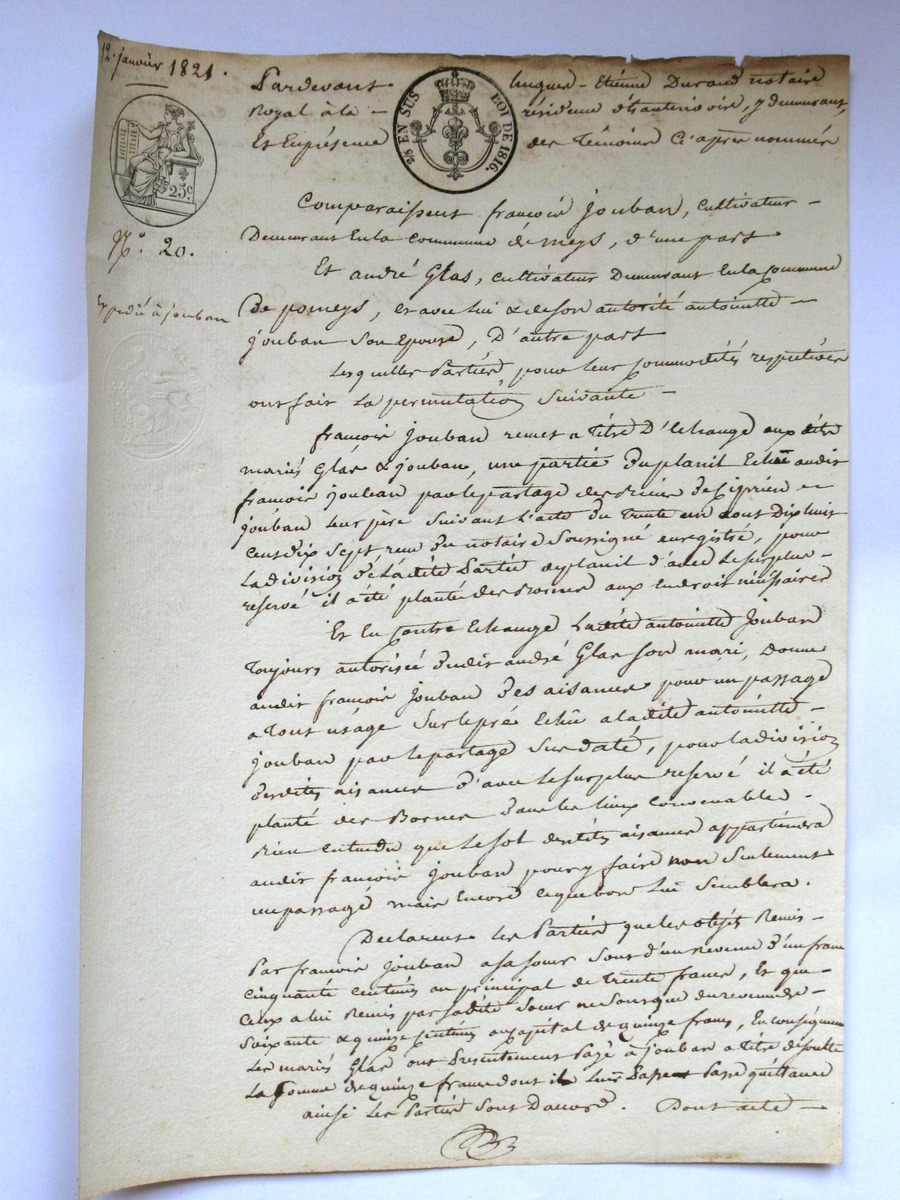 12. janvier 1821.
Pardevant hugues - Etienne Durand notaire
Royal à la - résidence de, y demeurant,
Et En présence des Témoins Ci-après nommés
2/5 EN SUS LOI DE 1816.
25c
N.o 20.
Expédié à jouban
Comparaissent françois Jouban, cultivateur -
Demeurant En la commune de meys, d'une part
Et andré Glas, cultivateur Demeurant En la Commune
De pomeys, et avec lui & de son autorité antoinette -
jouban Son Epouse, D'autre part
Lesquelles Parties, pour leur commodités respectives
ont fait La permutation Suivante -
françois Jouban remet a Titre D'Echange aux dits
mariés Glas & jouban, une partie Du planil Echu audit
francois jouban par le partage des Biens De Ciprien
jouban leur père Suivant l'acte du Trente un aout Dix huit
Cent dix Sept, reçu Du notaire Soussigné enregistré, pour
La division De Ladite Partie de planil d'avec Le Surplus -
reservé il a été planté des Bornes aux Endroits nécessaires
Et En Contre Echange Ladite antoinette Jouban
Toujours autorisée dudit andré Glas Son mari, donne
audit françois Jouban Des aisances pour un passage
a Tout usage Sur le pré Echu a ladite antoinette -
jouban par le partage Sus daté, pour la division
desdites aisances d'avec le Surplus reservé il a été
planté des Bornes Dans les lieux Convenables -
Bien entendu que le Sol desdites aisances appartiendra
audit françois Jouban pour y faire non Seulement
un passage mais Encore ce que bon Lui Semblera.
Declarent les Parties que les objets Remis -
Par françois Jouban a sa sœur Sont d'un Revenu D'un franc
Cinquante centimes au principal de Trente francs, Et que -
Ceux a lui Remis par sadite Sœur ne Sont que du revenu de -
Soixante & quinze Centimes au Capital de quinze francs, En conséquence
Les mariés Glas ont Presentement Payé à Jouban a Titre de soulte
La Somme de quinze francs dont il Leur Passe quittance
ainsi Les Parties Sont D'accord. Dont acte -